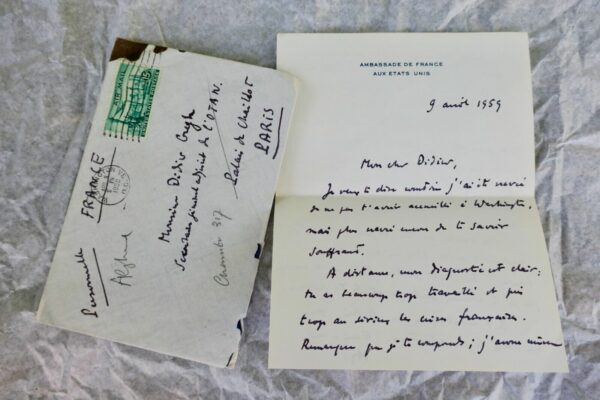 AIR MAIL
FRANCE
Personnelle
Monsieur Didier
Secrétaire général adjoint de l'OTAN.
Palais de Chaillot
PARIS
317
AMBASSADE DE FRANCE
AUX ETATS UNIS
9 août 1959
Mon cher Didier,
Je veux te dire combien j'ai été navré
de ne pas t'avoir accueilli à Washington,
mais plus navré encore de te savoir
souffrant.
A distance, mon diagnostic est clair:
tu as beaucoup trop travaillé et pris
trop au sérieux les crises françaises.
Remarque que je te comprends; j'avoue même